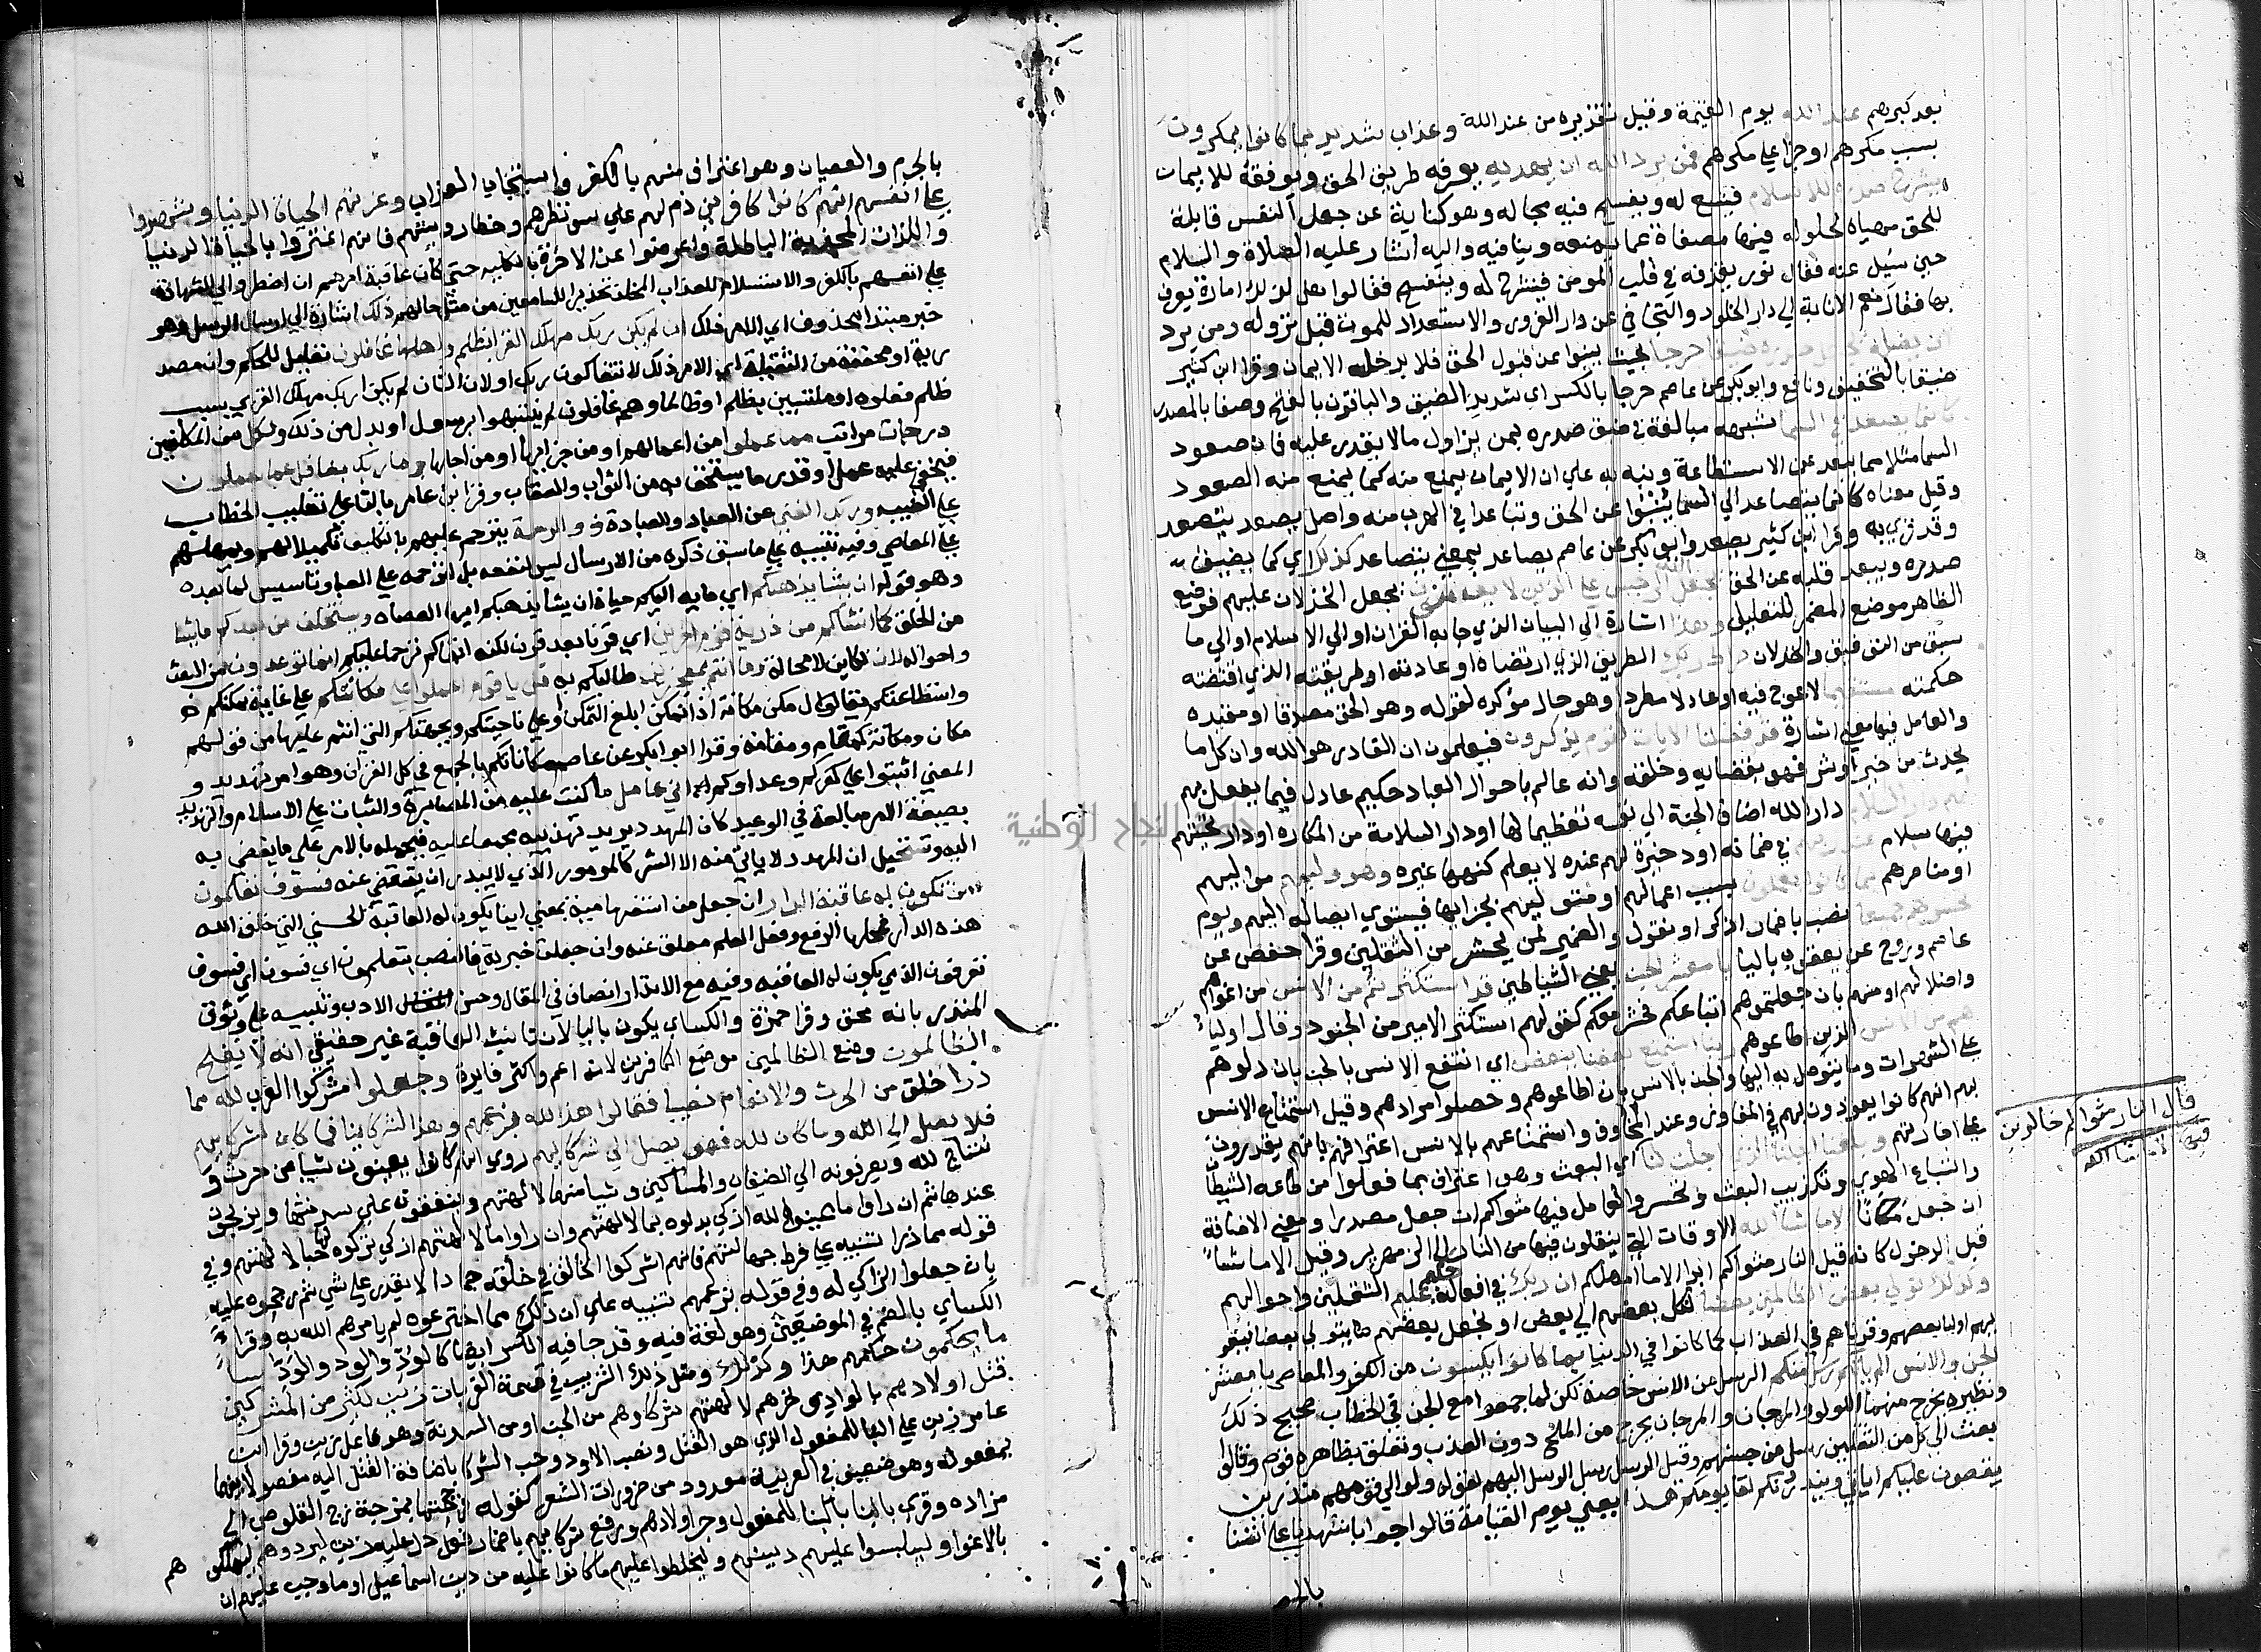 بعد كبرهم عند الله يوم القيمة وقيل تقديره من عند الله وعذاب شديد بما كانوا يمكرون
بسبب مكرهم او جزآ على مكرهم فمن يرد الله ان يهديه يعرفه طريق الحق ويوفقه للايمان
يشرح صدره للاسلام فيتسع له ويفسح فيه مجاله وهو كناية عن جعل النفس قابلة
للحق مهياة لحلوله فيها مصفاة عما يمنعه وينافيه واليه اشار عليه الصلاة والسلام
حين سئل عنه فقال نور يقذفه في قلب المومن فينشرح له وينفسح فقالوا هل لذلك امارة يعرف
بها فقال نعم الانابة الي دار الخلود والتجافي عن دار الغرور والاستعداد للموت قبل نزوله ومن يرد
ان يضله يجعل صدره ضيقا حرجا بحيث ينبوا عن قبول الحق فلا يدخله الايمان وقرا ابن كثير
ضيقا بالتخفيف ونافع وابو بكر عن عاصم حرجا بالكسر اي شديد الضيق والباقون بالفتح وصفا بالمصدر
كانما يصعد في السما شبهه مبالغة في ضيق صدره بمن يزاول مالا يقدر عليه فان صعود
السما مثلا مما يبعد عن الاستطاعة ونبه به علي ان الايمان يمتنع منه كما يمتنع منه الصعود
وقيل معناه كانما يتصاعد الي السما نبوا عن الحق وتباعدا في الهرب منه واصل يصعد يتصعد
وقد قري به وقرا ابن كثير يصعد وابو بكر عن عاصم يصاعد بمعني يتصاعد كذلك اي كما يضيق
صدره ويبعد قلبه عن الحق يجعل الله الرجس علي الذين لا يومنون يجعل الخذلان عليهم فوضع
الظاهر موضع المضمر للتعليل وهذا اشارة الي البيان الذي جا به القران او الي الاسلام او الي ما
سبق من التوفيق والخذلان صراط ربك الطريق الذي ارتضاه او عادته او طريقته الذي اقتضته
حكمته مستقيما لا عوج فيه او عادلا مطردا وهو حال مؤكده لقوله وهو الحق مصدقا او مقيده
والعامل فيها معنى اشارة قد فصلنا الايات لقوم يذكرون فيعلمون ان القادر هو الله وان كل ما
يحدث من خير او شر فهو بقضايه وخلقه وانه عالم باحوال العباد حكيم عادل فيما يفعل بهم
لهم دار السلام دار الله اضاف الجنة الي نفسه تعظيما لها او دار السلامة من المكاره او دار تحيتهم
فيها سلام عند ربهم في ضمانه او ذخيرة لهم عنده لا يعلم كنهها غيره وهو وليهم مواليهم
او ناصرهم بما كانوا يعملون بسبب اعمالهم او متوليهم بجزايها فيتولي ايصاله اليهم ويوم
نحشرهم جميعا نصب باضمار اذكر او نقول والضمير لمن يحشر من الثقلين وقرا حفص عن
عاصم وروح عن يعقوب باليا يا معشر الجن يعني الشياطين قد استكثرتم من الانس من اغوايهم
واضلالهم او منهم بان جعلتموهم اتباعكم فحشروا معكم كقولهم استكثر الامير من الجنود وقال اوليا
هم من الانس الذين اطاعوهم ربنا استمتع بعضنا ببعض اي انتفع الانس بالجن بان دلوهم
علي الشهوات وما يتوصل به اليها والجن بالانس بان اطاعوهم وحصلوا مرادهم وقيل استمتاع الانس
بهم انهم كانوا يعوذون بهم في المفاوز وعند المخاوف واستمتاعهم بالانس اعترافهم بانهم يقدرون
علي اجارتهم وبلغنا اجلنا الذي اجلت لنا اي البعث وهو اعتراف بما فعلوا من طاعه الشيطان
واتباع الهوي وتكذيب البعث وتحسر والعامل فيها مثواكم ان جعل مصدرا ومعني الاضافة
ان جعل مكانا الا ماشا الله الا وقات التي ينقلون فيها من النار الي الزمهرير وقيل الا ماشآ
قبل الدخول كانه قيل النار مثواكم ابدا الا ما امهلكم ان ربك حكيم في افعاله عليم باعمال الثقلين واحوالهم
وكذلك نولي بعض الظالمين بعضا نكل بعضهم الي بعض او نجعل بعضهم يتولي بعضا فيغو
يهم اوليا بعضهم وقرناهم في العذاب كما كانوا في الدنيا بما كانوا يكسبون من الكفر والمعاصي يا معشر
الجن والانس الم ياتكم رسل منكم الرسل من الانس خاصة لكن لما جمعوا مع الجن في الخطاب صح ذلك
ونظيره يخرج منهما اللولو والمرجان والمرجان يخرج من الملح دون العذب وتعلق بظاهره قوم وقالوا
بعث الي كل من الثقلين رسل من جنسهم وقيل الرسل رسل الرسل اليهم لقوله ولوا الي قومهم منذرين
يقصون عليكم اياتي وينذرونكم لقا يومكم هذا يعني يوم القيامة قالوا جوابا شهدنا علي انفسنا
بالجر
قال النار مثواكم خالدين
فيها الا ماشا الله
بالجرم والعصيان وهو اعتراف منهم بالكفر واستيجاب العذاب وغرتهم الحياة الدنيا وشهدوا
علي انفسهم انهم كانوا كافرين ذم لهم علي سو نظرهم وخطا رويتهم فانهم اغتروا بالحياة الدنيا
واللذات المخدجة الباطلة واعرضوا عن الاخرة بالكليه حتي كان عاقبة امرهم ان اضطروا الي الشهادة
علي انفسهم بالكفر والاستسلام للعذاب المخلد تحذيرا للسامعين من مثل حالهم ذلك اشارة الي ارسال الرسل وهو
خبر مبتدا محذوف اي الامر ذلك ان لم يكن ربك مهلك القرى بظلم واهلها غافلون تعليل للحكم وان مصد
رية او مخففة من الثقيلة اي الامر ذلك لانتفا كون ربك او لان الشان لم يكن ربك مهلك القري بسبب
ظلم فعلوه او ملتبسين بظلم او ظالما وهم غافلون لم ينبهوا برسول او بدل من ذلك ولكل من المكلفين
درجات مراتب مما عملوا من اعمالهم او من جزايها او من اجلها وما ربك بغافل عما يعملون
فيخفى عليه عمل او قدر ما يستحق به من الثواب والعقاب وقرا ابن عامر بالتا علي تغليب الخطاب
علي الغيبه وربك الغني عن العباد والعبادة ذو الرحمة يترحم عليهم بالتكليف تكميلا لهم ويمهلهم
علي المعاصي وفيه تنبيه علي ما سبق ذكره من الارسال ليس لنفعه بل لترحمه علي العباد وتاسيس لما بعده
وهو قوله ان يشا يذهبكم اي ما به اليكم حاجة ان يشا يذهبكم ايها العصاه ويستخلف من بعدكم ما يشا
من الخلق كما انشاكم من ذرية قوم اخرين اي قرنا بعد قرن لكنه ابقاكم ترحما عليكم انما توعدون من البعث
واحواله لات لكاين لا محالة وما انتم بمعجزين طالبكم به قل يا قوم اعملوا علي مكانتكم علي غاية تمكنكم
واستطاعتكم يقال مكن مكانة اذا تمكن ابلغ التمكن او علي ناحيتكم وجهتكم التي انتم عليها من قولهم
مكان ومكانة كمقام ومقامة وقرا ابو بكر عن عاصم مكاناتكم بالجمع في كل القران وهو امر تهديد و
المعني اثبتوا علي كفركم وعداوتكم اني عامل ما كنت عليه من المصابرة والثبات علي الاسلام والتهديد
بصيغة الامر مبالغة في الوعيد كان المهدد يريد تعذيبه مجمعا عليه فيحمله بالامر علي ما يفضي به
اليه وتسجيل ان المهدد لا ياتي منه الا الشر كالمامور الذي لا يقدر ان يتفصي عنه فسوف تعلمون
من تكون له عاقبة الدار ان جعل من استفهامية بمعني اينا يكون له العاقبة الحسني التي خلق الله
هذه الدار فمحلها الرفع وفعل العلم معلق عنه وان جعلت خبرية فالنصب بتعلمون اي فسوف
تعرفون الذي يكون له العاقبه وفيه مع الانذار انصاف في المقال وحسن الادب وتنبيه علي وثوق
المنذر بانه محق وقرا حمزة والكساي يكون باليا لان تانيث العاقبة غير حقيقي انه لا يفلح
الظالمون وضع الظالمين موضع الكافرين لانه اعم واكثر فايدة وجعلوا مشركوا العرب لله مما
ذرا خلق من الحرث والانعام نصيبا فقالوا هذا لله بزعمهم وهذا لشركاينا فما كان لشركايهم
فلا يصل الي الله وما كان لله فهو يصل الي شركايهم روي انهم كانوا يعينون شيا من حرث و
نتاج لله ويصرفونه الي الضيفان والمساكين وشيا منها لالهتهم وينفقون علي سدنتها ويذبحون
عندها ثم ان راوا ما عينوا لله ازكي بدلوه بما لالهتهم وان راوا ما لالهتهم ازكي تركوه لها حبا لالهتهم وفي
قوله مما ذرا تنبيه علي فرط جهالتهم فانهم اشركوا الخالق في خلقه جمادا لا يقدر علي شي ثم رجحوه عليه
بان جعلوا الزاكي له وفي قوله بزعمهم تنبيه علي ان ذلك مما اخترعوه لم يامرهم الله به وقرا
الكساي بالضم في الموضعين وهو لغة فيه وقد جا فيه الكسر ايضا كالود والود والود سا
ما يحكمون حكمهم هذا وكذلك ومثل ذلك التزيين في قسمة القربات زين لكثير من المشركين
قتل اولادهم بالواد ونحرهم لالهتهم شركاوهم من الجن او من السدنة وهو فاعل زين وقرا ابن
عامر زين علي البنا للمفعول الذي هو القتل ونصب الاولاد وجر الشركا باضافة القتل اليه مفصولا بينهما
بمفعوله وهو ضعيف في العربية معدود من ضرورات الشعر كقوله فزججتها بمزجة زج القلوص ابي
مزاده وقري بالبنا للمفعول وجر اولادهم ورفع شركايهم باضمار فعل دل عليه زين ليردوهم ليهلكوهم
بالاغوا وليلبسوا عليهم دينهم وليخلطوا عليهم ما كانوا عليه من دين اسماعيل او ما وجب عليهم ان
جامعة النجاح الوطنية